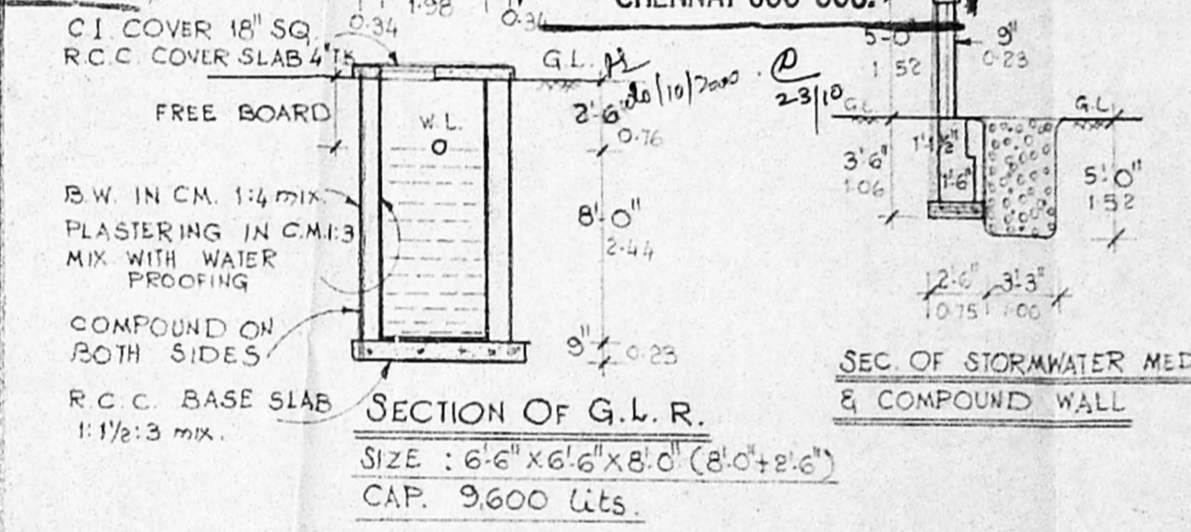 CHENNAI-600 008.
1.98
0.34
0.34
C.I. COVER 18" SQ.
R.C.C. COVER SLAB 4" TK
FREE BOARD
B.W. IN CM. 1:4 mix
PLASTERING IN C.M.1:3
MIX WITH WATER
PROOFING
COMPOUND ON
BOTH SIDES
R.C.C. BASE SLAB
1:1½:3 mix.
W.L.
G.L.
2'-6"
0.76
8'-0"
2.44
9"
0.23
SECTION OF G.L.R.
SIZE : 6'-6" X 6'-6" X 8'-0" (8'-0" + 2'-6")
CAP. 9,600 Lits.
23/10
5'-0"
1.52
9"
0.23
G.L.
G.L.
3'-6"
1.06
1'-1½"
1'-6"
5'-0"
1.52
2'-6"
3'-3"
0.75
1.00
SEC. OF STORMWATER MED
& COMPOUND WALL